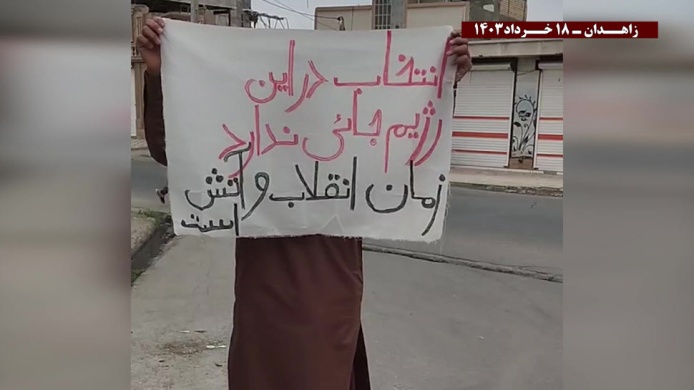 زاهـدان ــ ۱۸ خـرداد۱۴۰۳
انتخاب در این
رژیم جائی ندارد
زمان انقلاب و آتش
است